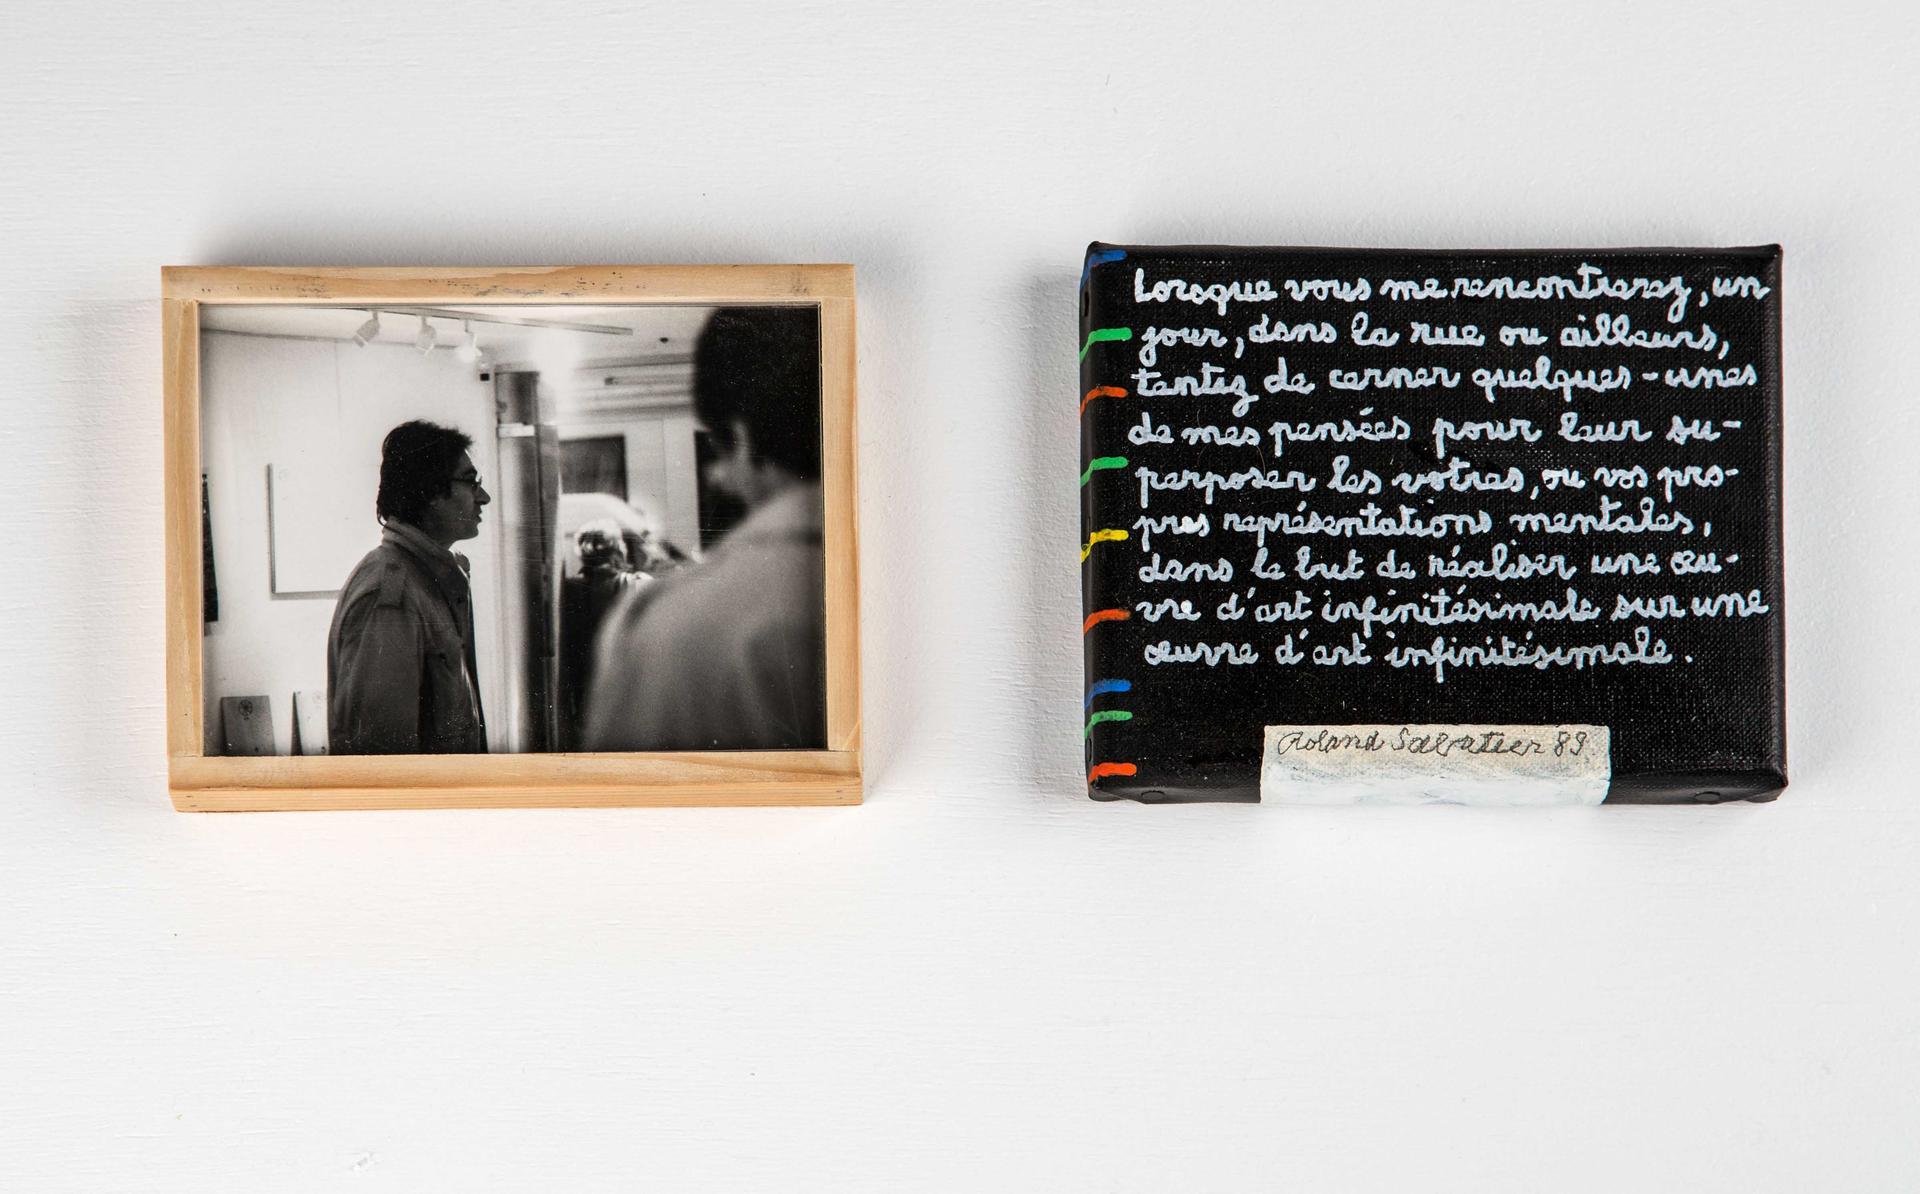 Lorsque vous me rencontrerez, un
jour, dans la rue ou ailleurs,
tentez de cerner quelques-unes
de mes pensées pour leur su-
perposer les votres, ou vos pro-
pres représentations mentales,
dans le but de réaliser une œu-
vre d'art infinitésimale sur une
œuvre d'art infinitésimale.
Roland Sabatier 89